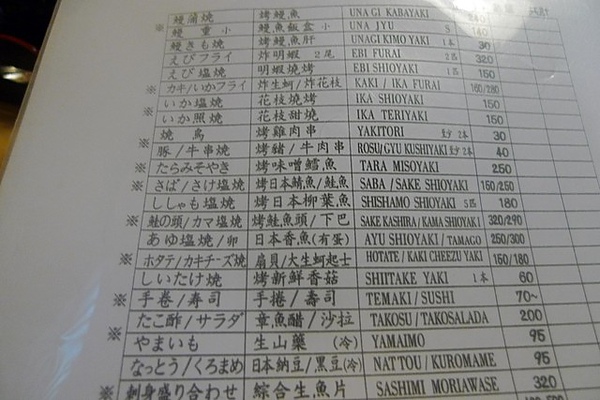 鰻蒲焼 烤鰻魚 UNAGI KABAYAKI
※ 鰻 重 小 鰻魚飯盒 小 UNA JYU S 140
鰻きも焼 烤鰻魚肝 UNAGI KIMO YAKI 1本 30
えびフライ 炸明蝦 2尾 EBI FURAI 2匹 320
えび塩焼 明蝦燒烤 EBI SHIOYAKI 1匹 150
※ カキ/いかフライ 炸生蚵/炸花枝 KAKI / IKA FURAI 160/280
※ いか塩焼 花枝燒烤 IKA SHIOYAKI 150
※ いか照焼 花枝甜燒 IKA TERIYAKI 150
焼 鳥 烤雞肉串 YAKITORI 2本 30
※ 豚/牛串焼 烤豬/牛肉串 ROSU/GYU KUSHIYAKI 2本 40
※ たらみそやき 烤味噌鱈魚 TARA MISOYAKI 250
※ さば/さけ塩焼 烤日本鯖魚/鮭魚 SABA / SAKE SHIOYAKI 150/250
※ ししゃも塩焼 烤日本柳葉魚 SHISHAMO SHIOYAKI 5匹 180
※ 鮭の頭/カマ塩焼 烤鮭魚頭/下巴 SAKE KASHIRA / KAMA SHIOYAKI 320/290
あゆ塩焼/卵 日本香魚(有蛋) AYU SHIOYAKI / TAMAGO 250/300
※ ホタテ/カキチーズ焼 扇貝/大生蚵起士 HOTATE / KAKI CHEEZU YAKI 150/180
しいたけ焼 烤新鮮香菇 SHIITAKE YAKI 1本 60
※ 手巻/寿司 手捲/壽司 TEMAKI / SUSHI 70~
※ たこ酢/サラダ 章魚醋/沙拉 TAKOSU / TAKOSALADA 200
やまいも 生山藥 (冷) YAMAIMO 95
なっとう/くろまめ 日本納豆/黒豆(冷) NATTOU / KUROMAME 95
※ 刺身盛り合わせ 綜合生魚片 SASHIMI MORIAWASE 320